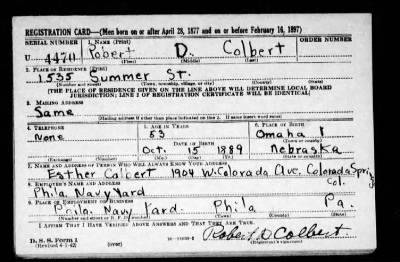 REGISTRATION CARD—(Men born on or after April 28, 1877 and on or before February 16, 1897)
SERIAL NUMBER 1. NAME (Print) ORDER NUMBER
U 4470 Robert D. Colbert
(First) (Middle) (Last)
2. PLACE OF RESIDENCE (Print)
1535 Summer St.
(Number and street) (Town, township, village, or city) (County) (State)
[THE PLACE OF RESIDENCE GIVEN ON THE LINE ABOVE WILL DETERMINE LOCAL BOARD
JURISDICTION; LINE 2 OF REGISTRATION CERTIFICATE WILL BE IDENTICAL]
3. MAILING ADDRESS
Same
[Mailing address if other than place indicated on line 2. If same insert word same]
4. TELEPHONE 5. AGE IN YEARS 6. PLACE OF BIRTH
None 53 Omaha
DATE OF BIRTH (Town or county)
Oct. 15 1889 Nebraska
(Exchange) (Number) (Mo.) (Day) (Yr.) (State or country)
7. NAME AND ADDRESS OF PERSON WHO WILL ALWAYS KNOW YOUR ADDRESS
Esther Colbert 1904 W. Colorada Ave. Colorada Springs
Col.
8. EMPLOYER'S NAME AND ADDRESS
Phila. Navy Yard
9. PLACE OF EMPLOYMENT OR BUSINESS
Phila. Navy Yard. Phila Pa.
(Number and street or R. F. D. number) (Town) (County) (State)
I AFFIRM THAT I HAVE VERIFIED ABOVE ANSWERS AND THAT THEY ARE TRUE.
Robert D Colbert
D. S. S. Form 1
(Revised 4-1-42) (over) (Registrant's signature)